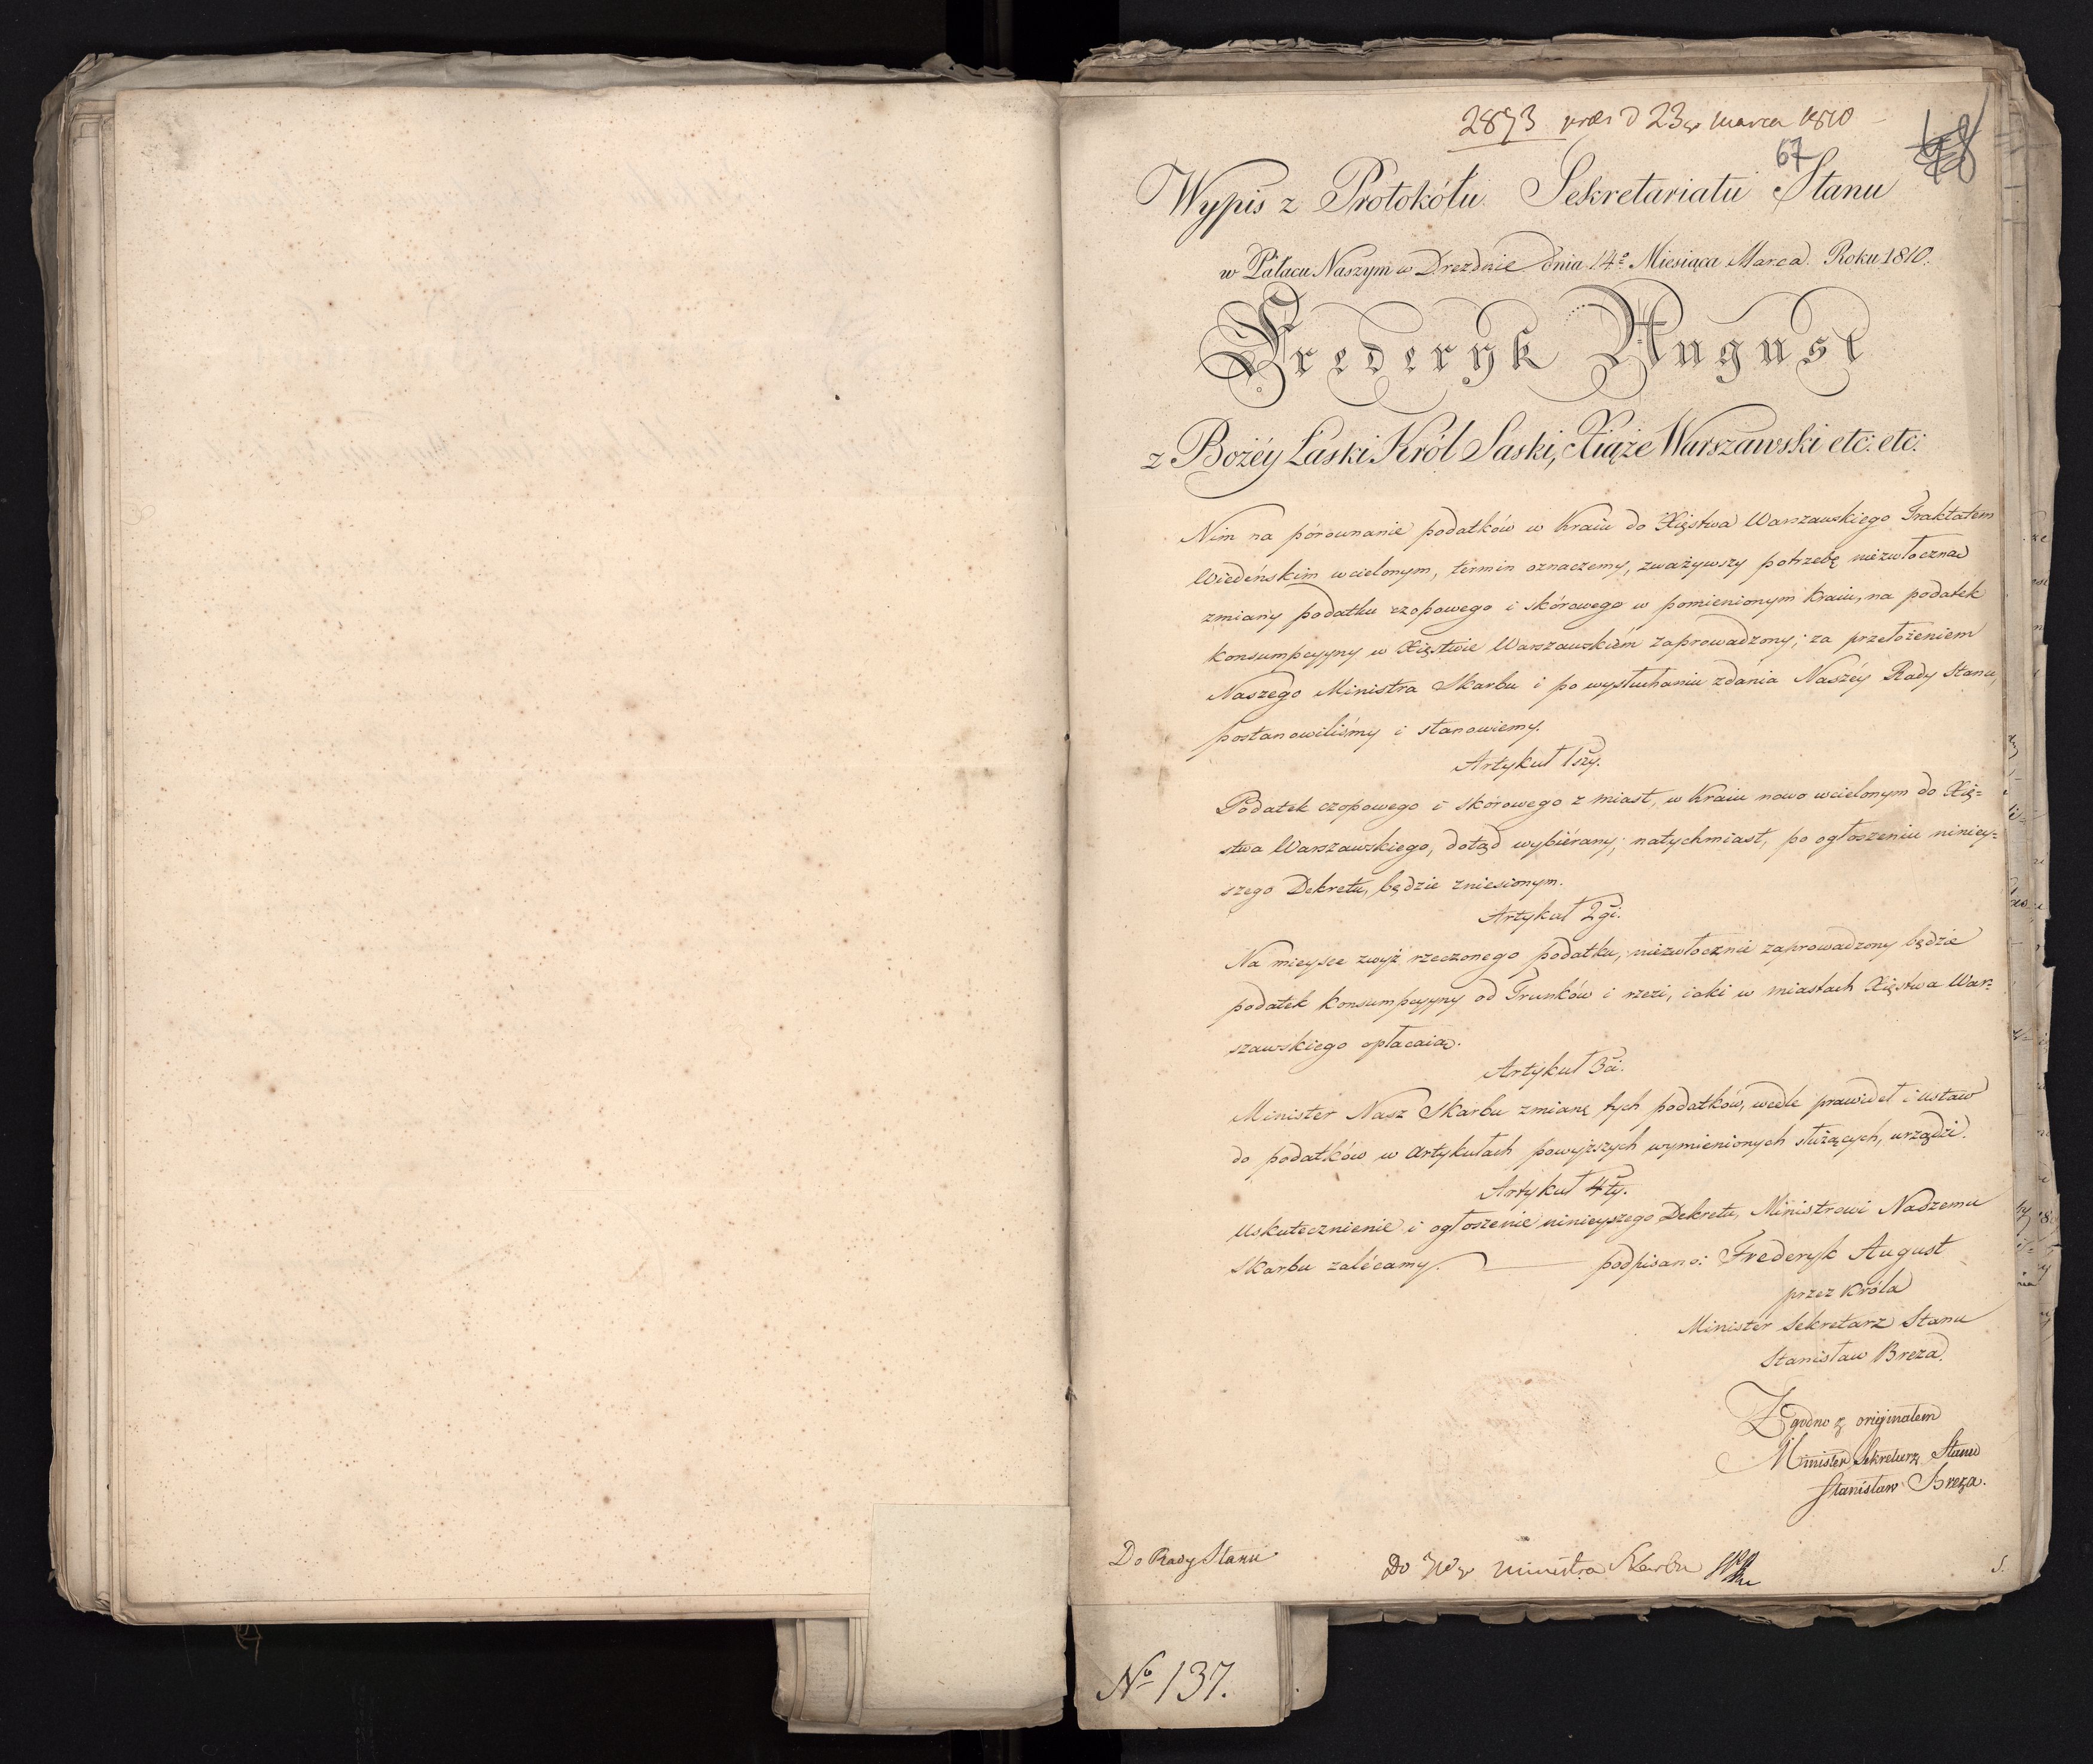 2873 praes d 23 marca 1810
67
Wypis z Protokółu Sekretariatu Stanu
w Pałacu Naszym w Dreznie dnia 14º Miesiąca Marca Roku 1810.
Frederyk August
z Bożéy Łaski Król Saski, Xiąże Warszawski etc: etc:
Nim na porownanie podatków w Kraiu do Xięstwa Warszawskiego Traktatem
Wiedeńskim wcielonym, termin oznaczemy, zważywszy potrzebę niezwłoczną
zmiany podatku czopowego i skórowego w pomienionym kraiu, na podatek
konsumpcyyny w Xięstwie Warszawskiém zaprowadzony; za przełożeniem
Naszego Ministra Skarbu i po wysłuchaniu zdania Naszéy Rady Stanu,
postanowiliśmy i stanowiemy.
Artykuł 1szy.
Podatek czopowego i skórowego z miast, w Kraiu nowo wcielonym do Xię=
stwa Warszawskiego, dotąd wybiérany; natychmiast, po ogłoszeniu niniey=
szego Dekretu, będzie zniesionym.
Artykuł 2gi.
Na mieysce zwyż rzeczonego podatku, niezwłocznie zaprowadzony będzie
podatek konsumpcyyny od Trunków i rzezi, iaki w miastach Xięstwa War=
szawskiego opłacaią.
Artykuł 3ci.
Minister Nasz Skarbu zmianę tych podatków, wedle prawideł i ustaw
do podatków w Artykułach powyższych wymienionych służących, urządzi.
Artykuł 4ty.
Uskutecznienie i ogłoszenie ninieyszego Dekretu, Ministrowi Naszemu
Skarbu zalécamy. podpisano: Frederyk August
przez Króla
Minister Sekretarz Stanu
Stanisław Breza.
Zgodno z oryginałem
Minister Sekretarz Stanu
Stanisław Breza.
Do Rady Stanu
Do JWgo Ministra Skarbu
S.
Nº 137.